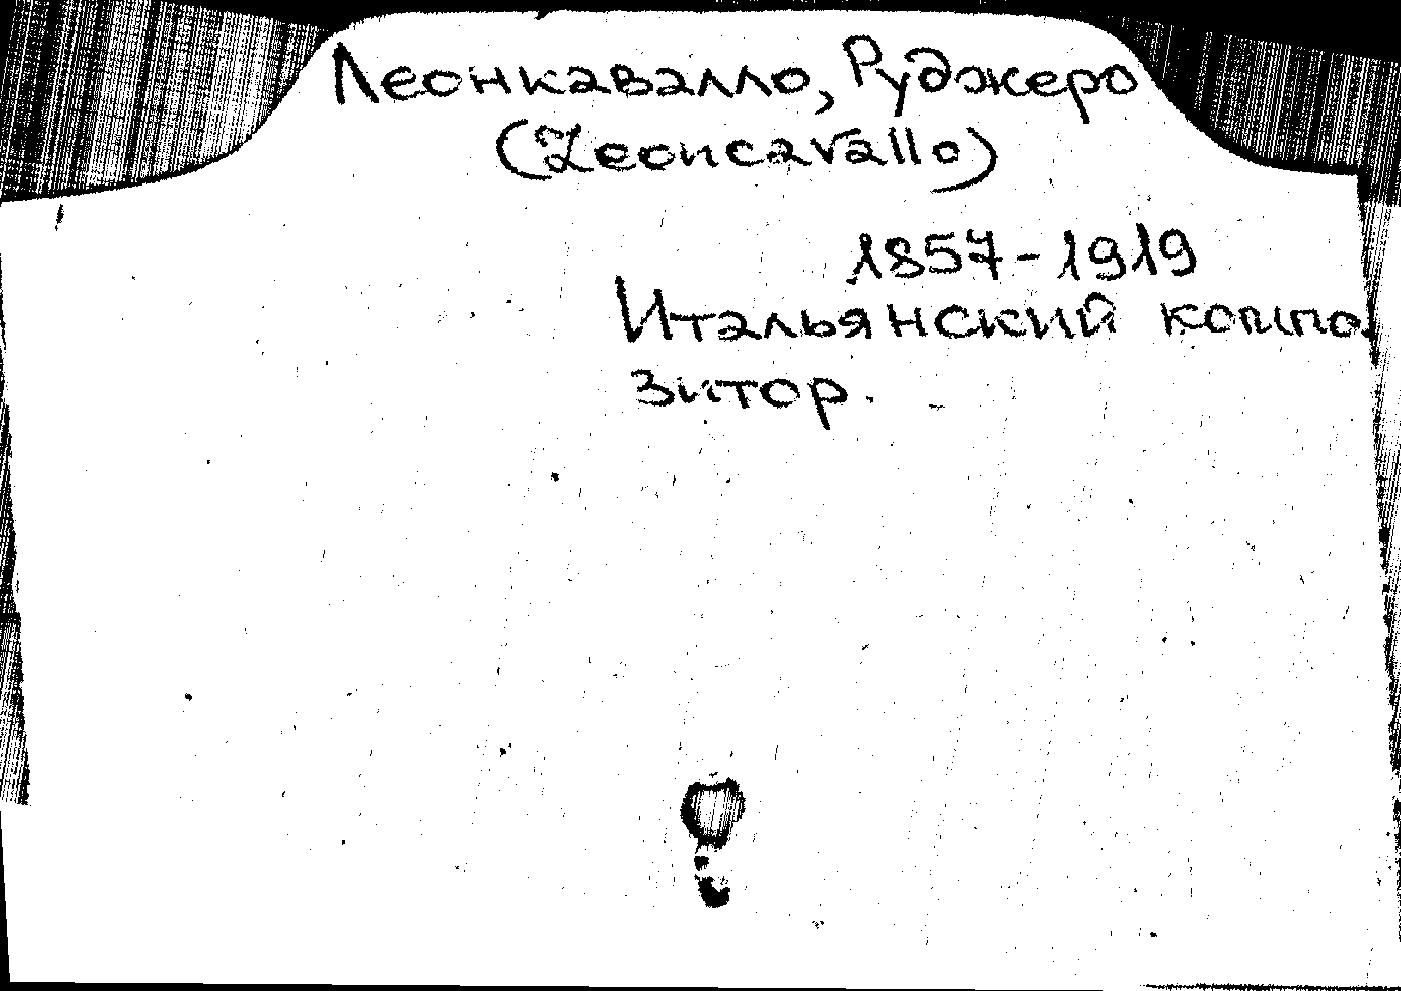 Леонкавалло, Руджеро
(Leoncavallo)
1857-1919
Итальянский компо-
зитор.